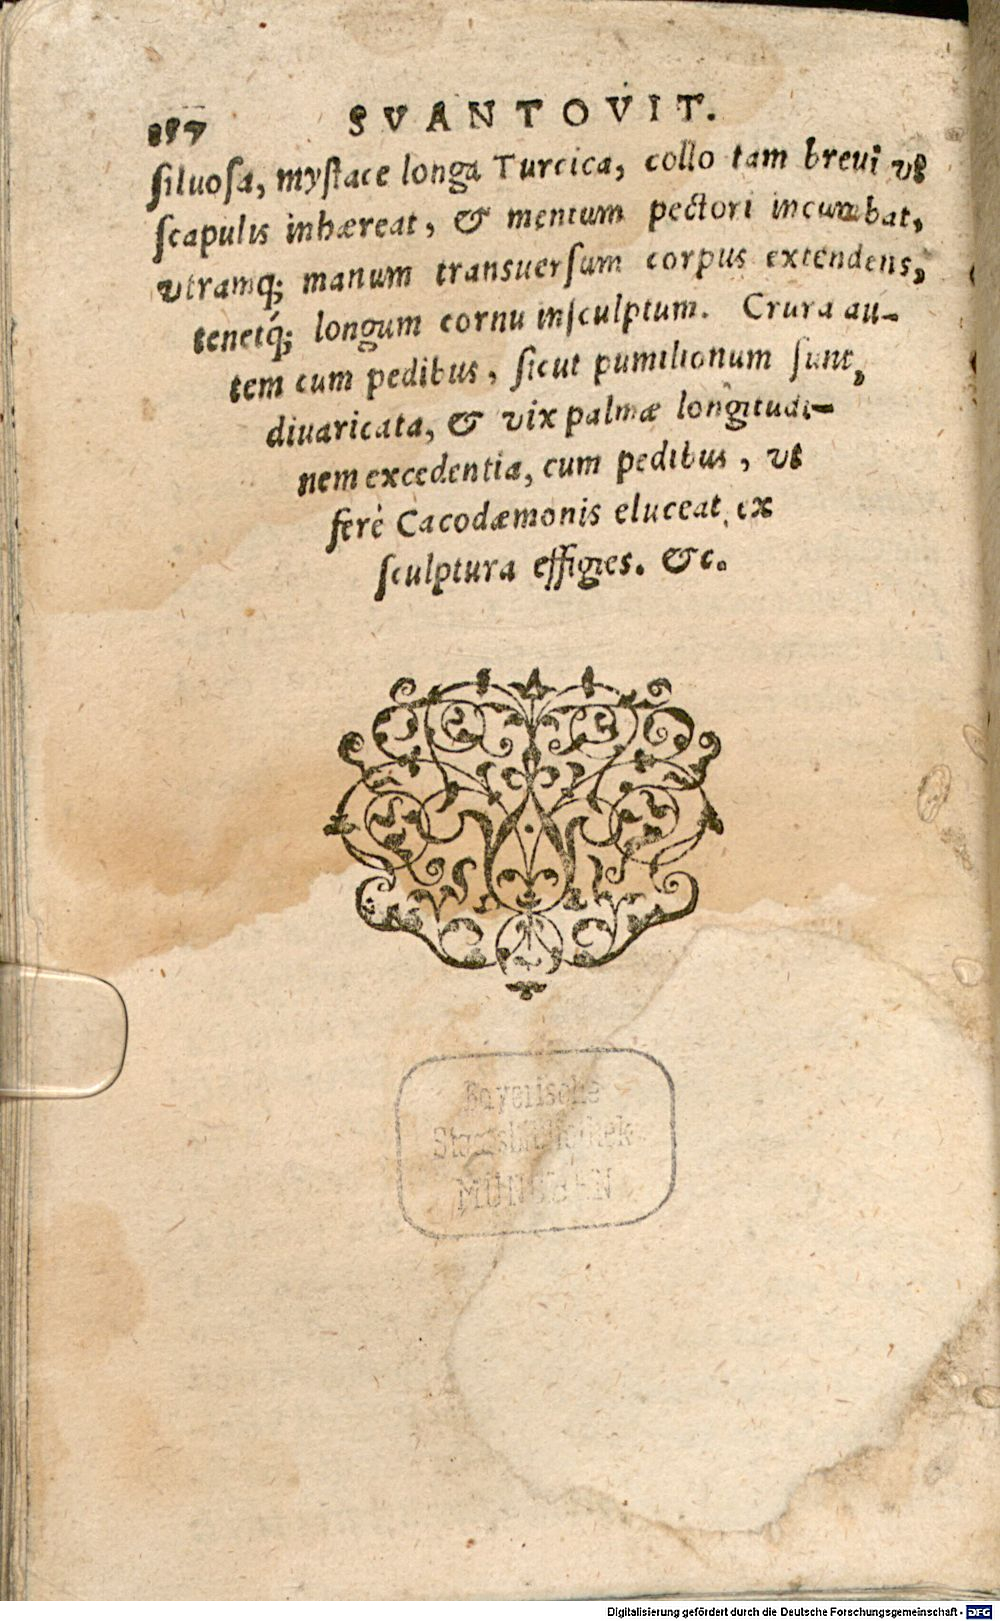 157 SVANTOVIT.
ſiluoſa, myſtace longa Turcica, collo tam breui vt
ſcapulis inhæreat, & mentum pectori incumbat,
vtramq; manum transuerſum corpus extendens,
tenetq́; longum cornu inſculptum. Crura au-
tem cum pedibus, ſicut pumilionum ſunt,
diuaricata, & vix palmæ longitudi-
nem excedentia, cum pedibus, vt
ferè Cacodæmonis eluceat ex
ſculptura effigies. &c.
Bayerische
Staatsbibliothek
MÜNCHEN
Digitalisierung gefördert durch die Deutsche Forschungsgemeinschaft - DFG